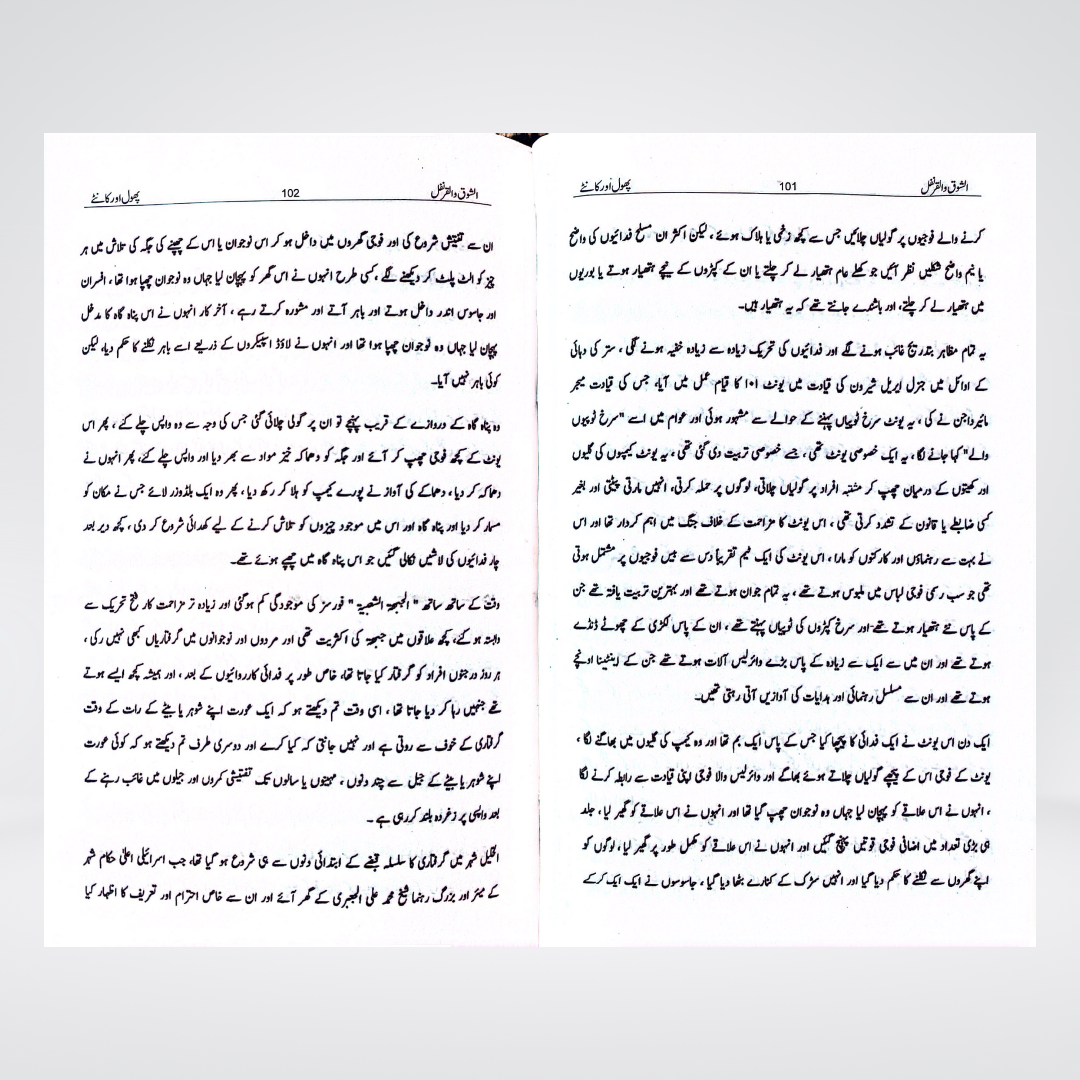 الشوق والقرنفل 101 پھول اور کانٹے
کرنے والے فوجیوں پر گولیاں چلائیں جس سے کچھ زخمی یا ہلاک ہوئے ، لیکن اکثر ان مسلح فدائیوں کی واضح
یا نیم واضح شکلیں نظر آئیں جو کھلے عام ہتھیار لے کر چلتے یا ان کے کپڑوں کے نیچے ہتھیار ہوتے یا بوریوں
میں ہتھیار لے کر چلتے، اور باشندے جانتے تھے کہ یہ ہتھیار ہیں۔
یہ تمام مظاہر بتدریج غائب ہونے لگے اور فدائیوں کی تحریک زیادہ سے زیادہ خفیہ ہونے لگی ، ستر کی دہائی
کے اوائل میں جنرل ایریل شیرون کی قیادت میں یونٹ ۱۰۱ کا قیام عمل میں آیا، جس کی قیادت میجر
مائیر داجن نے کی ، یہ یونٹ سرخ ٹوپیاں پہننے کے حوالے سے مشہور ہوئی اور عوام میں اسے "سرخ ٹوپیوں
والے" کہا جانے لگا، یہ ایک خصوصی یونٹ تھی ، جسے خصوصی تربیت دی گئی تھی ، یہ یونٹ کیمپوں کی گلیوں
اور کھیتوں کے درمیان چھپ کر مشتبہ افراد پر گولیاں چلاتی، لوگوں پر حملہ کرتی، انہیں مارتی پیٹتی اور بغیر
کسی ضابطے یا قانون کے تشدد کرتی تھی ، اس یونٹ کا مزاحمت کے خلاف جنگ میں اہم کردار تھا اور اس
نے بہت سے رہنماؤں اور کارکنوں کو مارا ، اس یونٹ کی ایک ٹیم تقریباً دس سے بیس فوجیوں پر مشتمل ہوتی
تھی جو سب رسمی فوجی لباس میں ملبوس ہوتے تھے ، یہ تمام جوان ہوتے تھے اور بہترین تربیت یافتہ تھے جن
کے پاس نئے ہتھیار ہوتے تھے اور سرخ کپڑوں کی ٹوپیاں پہنتے تھے ، ان کے پاس لکڑی کے چھوٹے ڈنڈے
ہوتے تھے اور ان میں سے ایک سے زیادہ کے پاس بڑے وائرلیس آلات ہوتے تھے جن کے اینٹینا اونچے
ہوتے تھے اور ان سے مسلسل رہنمائی اور ہدایات کی آوازیں آتی رہتی تھیں۔
ایک دن اس یونٹ نے ایک فدائی کا پیچھا کیا جس کے پاس ایک بم تھا اور وہ کیمپ کی گلیوں میں بھاگنے لگا ،
یونٹ کے فوجی اس کے پیچھے گولیاں چلاتے ہوئے بھاگے اور وائرلیس والا فوجی اپنی قیادت سے رابطہ کرنے لگا
، انہوں نے اس علاقے کو پہچان لیا جہاں وہ نوجوان چھپ گیا تھا اور انہوں نے اس علاقے کو گھیر لیا ، جلد
ہی بڑی تعداد میں اضافی فوجی قوتیں پہنچ گئیں اور انہوں نے اس علاقے کو مکمل طور پر گھیر لیا ، لوگوں کو
اپنے گھروں سے نکلنے کا حکم دیا گیا اور انہیں سڑک کے کنارے بٹھا دیا گیا ، جاسوسوں نے ایک ایک کرکے
الشوق والقرنفل 102 پھول اور کانٹے
ان سے تفتیش شروع کی اور فوجی گھروں میں داخل ہو کر اس نوجوان یا اس کے چھپنے کی جگہ کی تلاش میں ہر
چیز کو الٹ پلٹ کر دیکھنے لگے ، کسی طرح انہوں نے اس گھر کو پہچان لیا جہاں وہ نوجوان چھپا ہوا تھا ، افسران
اور جاسوس اندر داخل ہوتے اور باہر آتے اور مشورہ کرتے رہے ، آخر کار انہوں نے اس پناہ گاہ کا مدخل
پہچان لیا جہاں وہ نوجوان چھپا ہوا تھا اور انہوں نے لاؤڈ اسپیکروں کے ذریعے اسے باہر نکلنے کا حکم دیا، لیکن
کوئی باہر نہیں آیا۔
وہ پناہ گاہ کے دروازے کے قریب پہنچے تو ان پر گولی چلائی گئی جس کی وجہ سے وہ واپس چلے گئے ، پھر اس
یونٹ کے کچھ فوجی چھپ کر آئے اور جگہ کو دھماکہ خیز مواد سے بھر دیا اور واپس چلے گئے، پھر انہوں نے
دھماکہ کر دیا ، دھماکے کی آواز نے پورے کیمپ کو ہلا کر رکھ دیا ، پھر وہ ایک بلڈوزر لائے جس نے مکان کو
مسمار کر دیا اور پناہ گاہ اور اس میں موجود چیزوں کو تلاش کرنے کے لیے کھدائی شروع کر دی ، کچھ دیر بعد
چار فدائیوں کی لاشیں نکالی گئیں جو اس پناہ گاہ میں چھپے ہوئے تھے۔
وقت کے ساتھ ساتھ " الجبهة الشعبية " فورسز کی موجودگی کم ہوگئی اور زیادہ تر مزاحمت کار فتح تحریک سے
وابستہ ہو گئے، کچھ علاقوں میں جبهة کی اکثریت تھی اور مردوں اور نوجوانوں میں گرفتاریاں کبھی نہیں رکی ،
ہر روز درجنوں افراد کو گرفتار کیا جاتا تھا، خاص طور پر فدائی کارروائیوں کے بعد ، اور ہمیشہ کچھ ایسے ہوتے
تھے جنہیں رہا کر دیا جاتا تھا ، اسی وقت تم دیکھتے ہو کہ ایک عورت اپنے شوہر یا بیٹے کے رات کے وقت
گرفتاری کے خوف سے روتی ہے اور نہیں جانتی کہ کیا کرے اور دوسری طرف تم دیکھتے ہو کہ کوئی عورت
اپنے شوہر یا بیٹے کے جیل سے چند دنوں ، مہینوں یا سالوں تک تفتیشی کمروں اور جیلوں میں غائب رہنے کے
بعد واپسی پر زغردہ بلند کررہی ہے ۔
الخلیل شہر میں گرفتاری کا سلسلہ قبضے کے ابتدائی دنوں سے ہی شروع ہو گیا تھا، جب اسرائیلی اعلیٰ حکام شہر
کے میئر اور بزرگ رہنما شیخ محمد علی الجعبری کے گھر آئے اور ان سے خاص احترام اور تعریف کا اظہار کیا